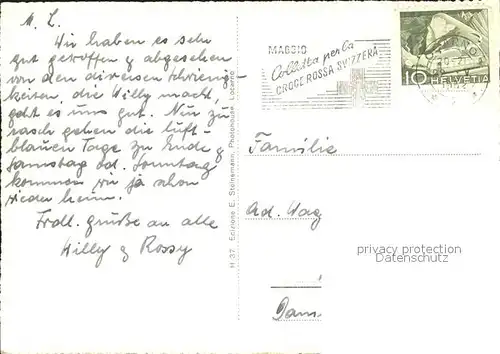 M. L.
Wir haben es sehr
gut getroffen & abgesehen
von den diversen Schwierig-
keiten, die Willy macht,
geht es uns gut. Nur zu
rasch gehen die luft-
blauen Tage zu Ende &
Samstag od. Sonntag
kommen wir ja schon
wieder heim.
Frdl. Grüße an alle
Willy & Rossy
H 37 Edizione E. Steinemann, Photohouse, Locarno
MAGGIO
Colletta per la
CROCE ROSSA SVIZZERA
10 HELVETIA
Familie
Ad. Wag
Dam
privacy protection
Datenschutz